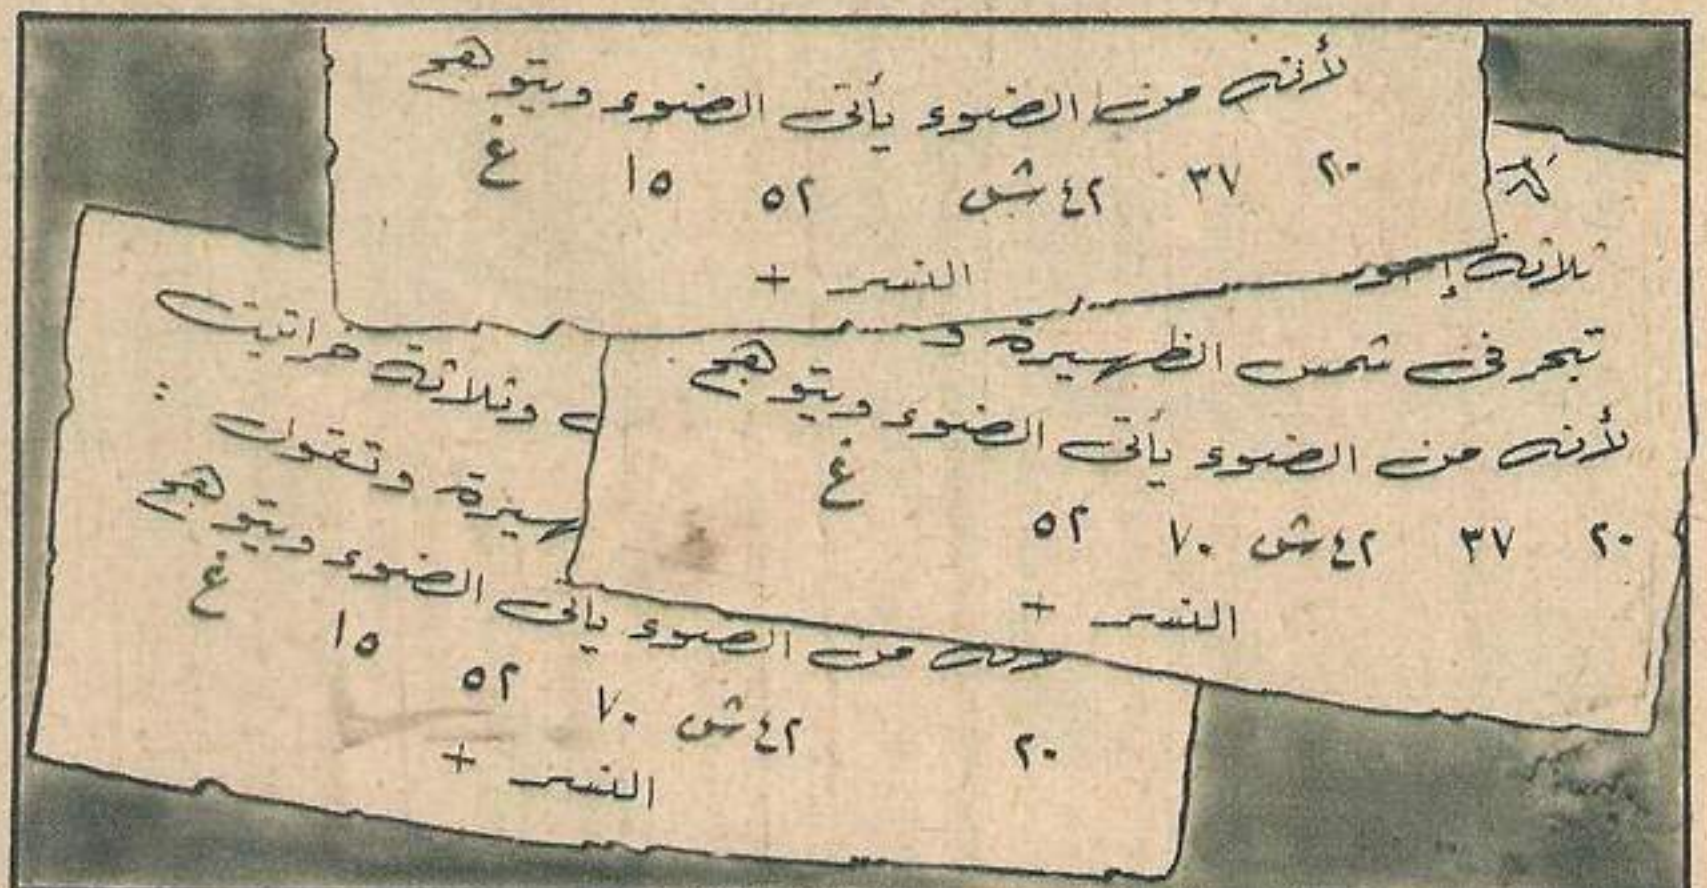 لأنه من الضوء يأتى الضوء ويتوهج
٢٠ ٣٧ ٤٢ ش ٥٢ ١٥ غ
النسر +
ثلاثة إخو
تبحر فى شمس الظهيرة و
لأنه من الضوء يأتى الضوء ويتوهج
٢٠ ٣٧ ٤٢ ش ٧٠ ٥٢ غ
النسر +
وثلاثة خراتيت
هيرة وتقول :
لأنه من الضوء يأتى الضوء ويتوهج
٢٠ ٤٢ ش ٧٠ ٥٢ ١٥ غ
النسر +